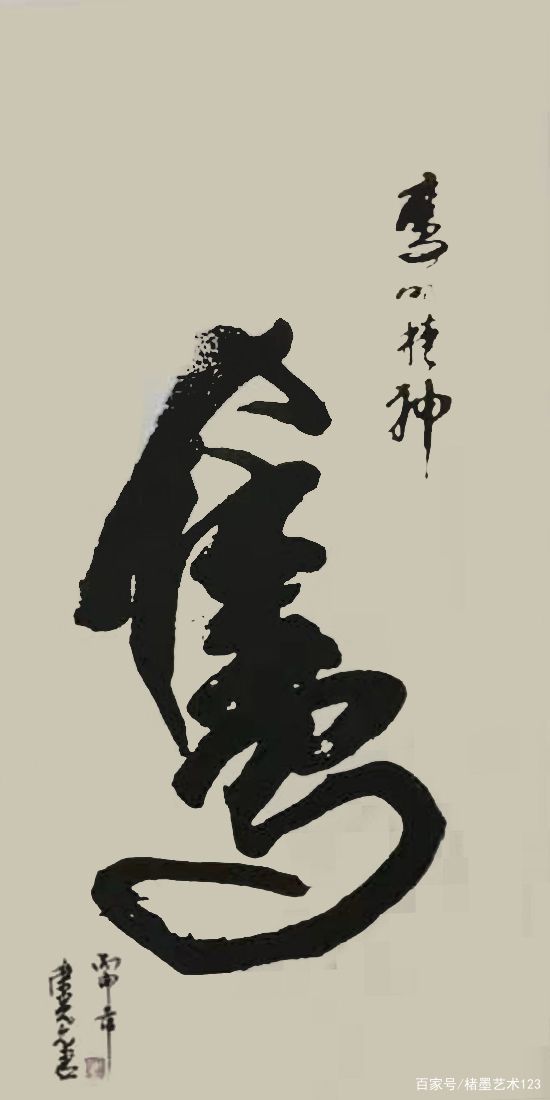 鹰的精神
鹰
丙申
百家号/楮墨艺术123